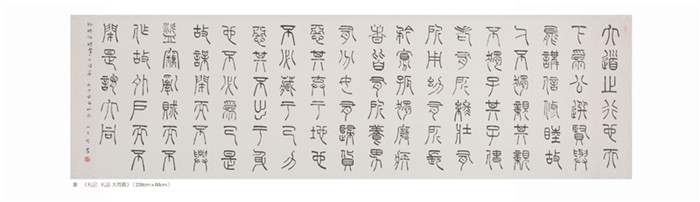 大道之行也天
下為公選賢與
能講信修睦故
人不獨親其親
不獨子其子使
老有所終壯有
所用幼有所長
矜寡孤獨廢疾
者皆有所養男
有分女有歸貨
惡其棄于地也
不必藏于己力
惡其不出于身
也不必為己是
故謀閉而不興
盜竊亂賊而不
作故外戶而不
閉是謂大同
《礼记 礼运 大同篇》（238cm×68cm）